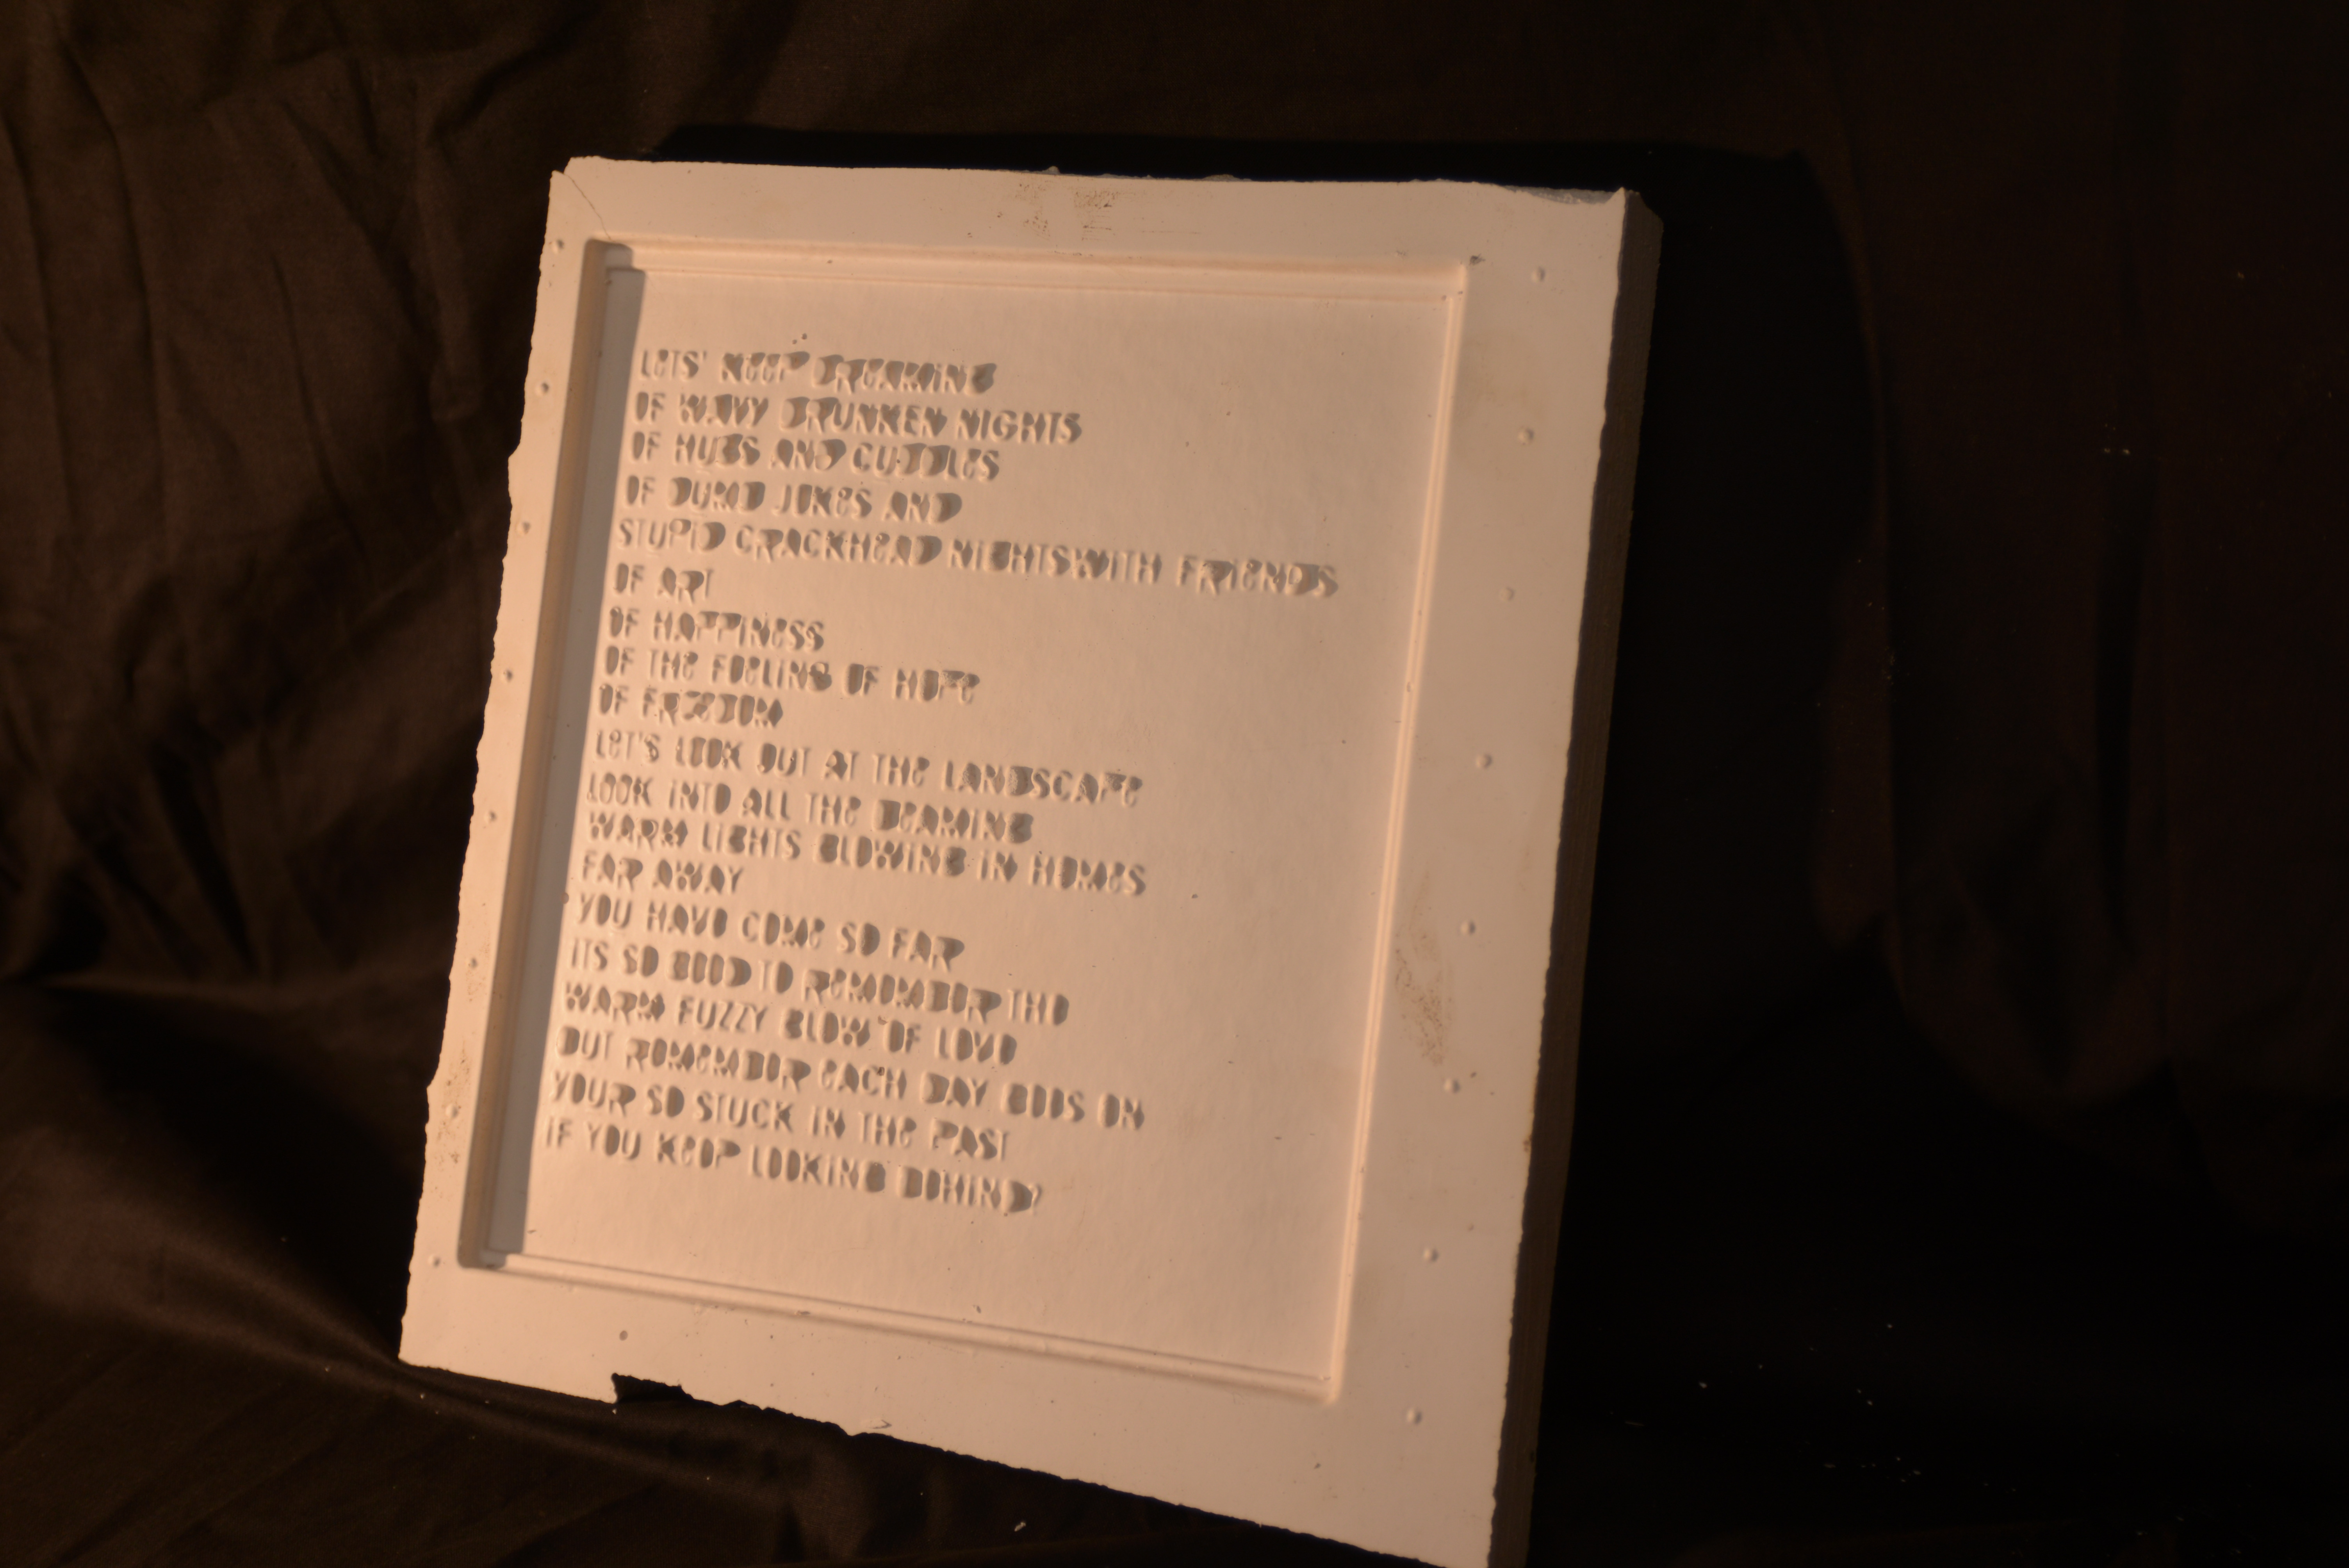 LETS' KEEP DREAMING
OF WAVY DRUNKEN NIGHTS
OF HUGS AND CUDDLES
OF DUMB JOKES AND
STUPID CRACKHEAD NIGHTSWITH FRIENDS
OF ART
OF HAPPINESS
OF THE FEELING OF HOPE
OF FREEDOM
LET'S LOOK OUT AT THE LANDSCAPE
LOOK INTO ALL THE BEAMING
WARM LIGHTS GLOWING IN HOMES
FAR AWAY
YOU HAVE COME SO FAR
ITS SO GOOD TO REMEMBER THE
WARM FUZZY GLOW OF LOVE
BUT REMEMBER EACH DAY GOES ON
YOUR SO STUCK IN THE PAST
IF YOU KEEP LOOKING BEHIND?